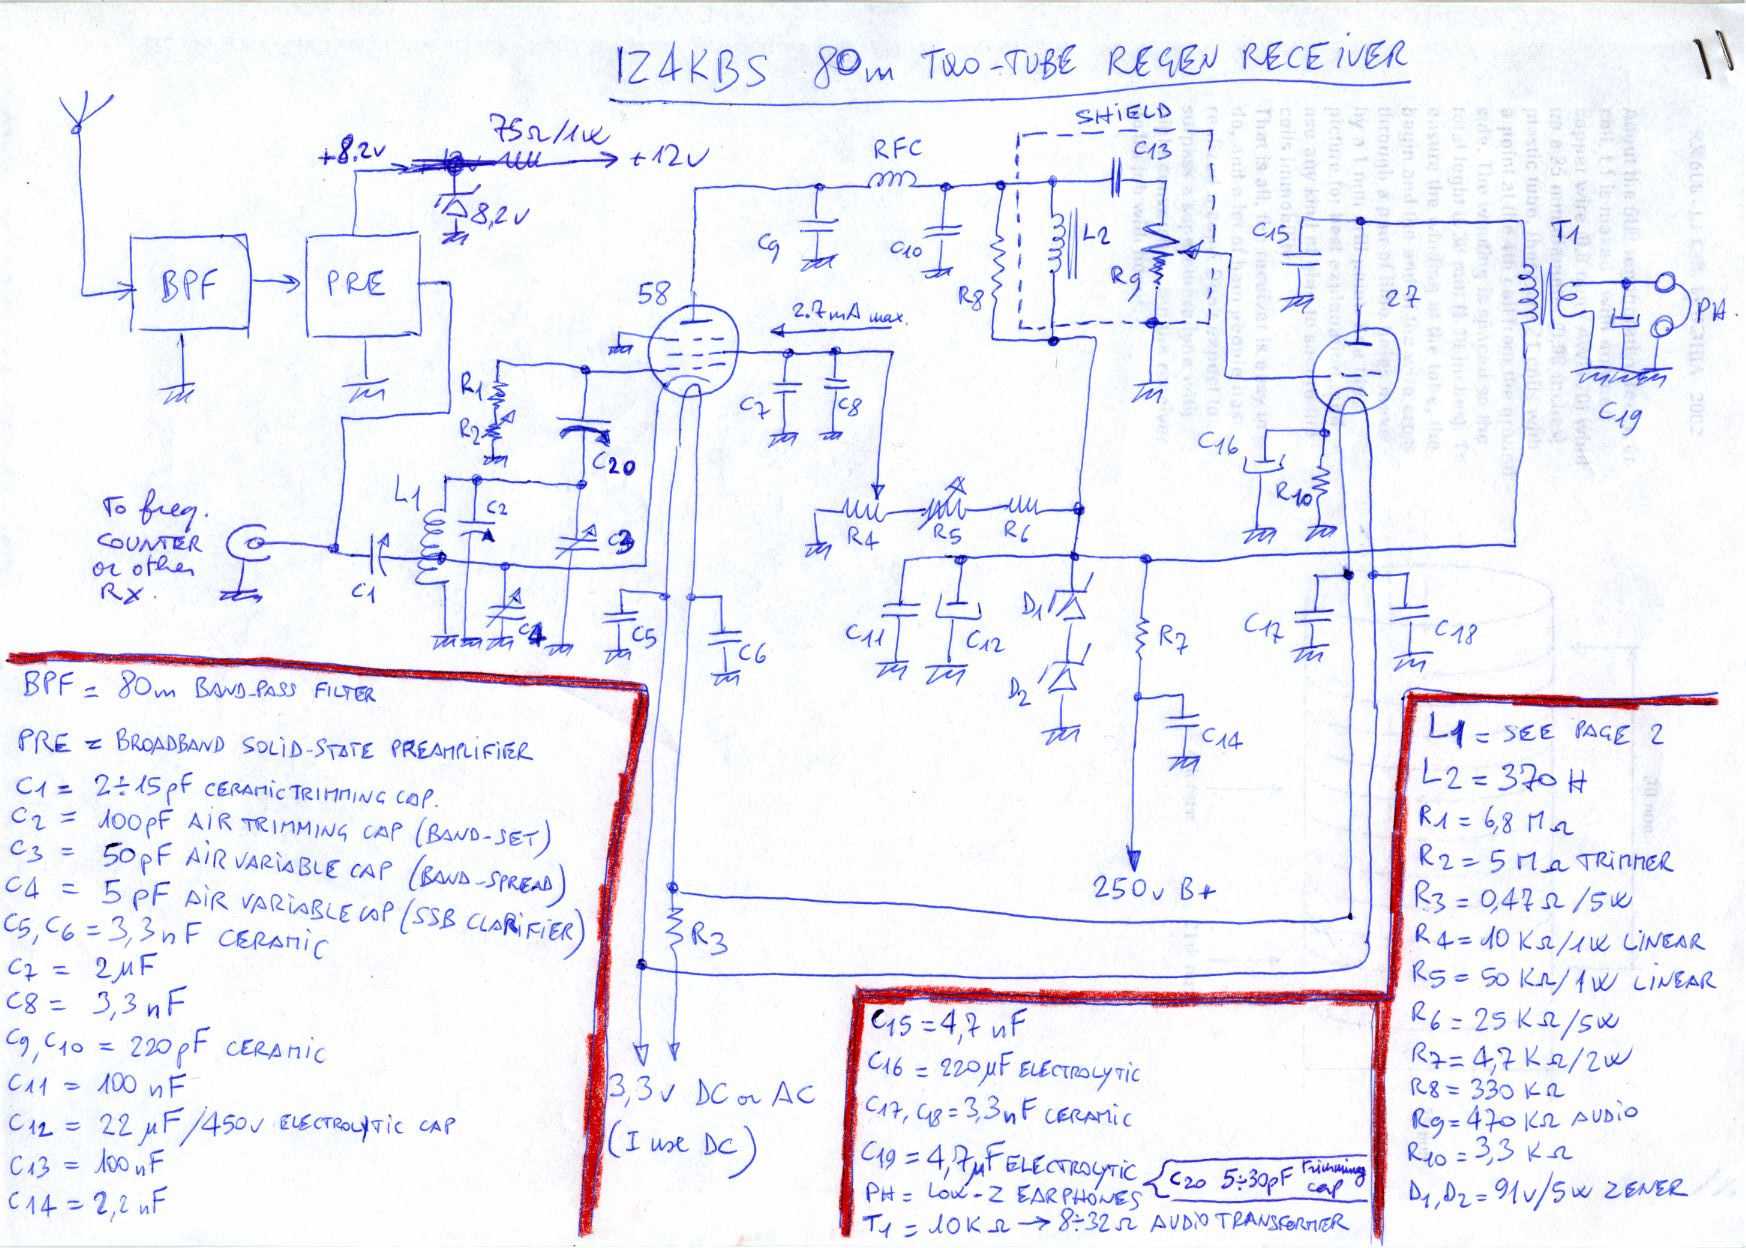 11
IZ4KBS 80m TWO-TUBE REGEN RECEIVER
SHIELD
75Ω/1W
+8.2V
+12V
8,2V
RFC
C13
C9
C10
R8
L2
R9
C15
T1
BPF
PRE
58
2.7mA max.
27
PH.
C19
R1
R2
C20
C7
C8
C16
R10
L1
C2
C3
R4
R5
R6
To freq.
COUNTER
or other
RX.
C1
C4
C5
C6
C11
C12
D1
D2
R7
C14
C17
C18
250V B+
R3
3,3V DC or AC
(I use DC)
BPF = 80m BAND-PASS FILTER
PRE = BROADBAND SOLID-STATE PREAMPLIFIER
C1 = 2÷15pF CERAMIC TRIMMING CAP.
C2 = 100pF AIR TRIMMING CAP (BAND-SET)
C3 = 50pF AIR VARIABLE CAP (BAND-SPREAD)
C4 = 5pF AIR VARIABLE CAP (SSB CLARIFIER)
C5, C6 = 3,3nF CERAMIC
C7 = 2µF
C8 = 3,3nF
C9, C10 = 220pF CERAMIC
C11 = 100nF
C12 = 22µF/450V ELECTROLYTIC CAP
C13 = 100nF
C14 = 2,2nF
C15 = 4,7nF
C16 = 220µF ELECTROLYTIC
C17, C18 = 3,3nF CERAMIC
C19 = 4,7µF ELECTROLYTIC
C20 5÷30pF trimming cap
PH = LOW-Z EARPHONES
T1 = 10KΩ → 8÷32Ω AUDIO TRANSFORMER
L1 = SEE PAGE 2
L2 = 370H
R1 = 6,8 MΩ
R2 = 5 MΩ TRIMMER
R3 = 0,47Ω/5W
R4 = 10KΩ/1W LINEAR
R5 = 50KΩ/1W LINEAR
R6 = 25KΩ/5W
R7 = 4,7KΩ/2W
R8 = 330KΩ
R9 = 470KΩ AUDIO
R10 = 3,3KΩ
D1, D2 = 91V/5W ZENER